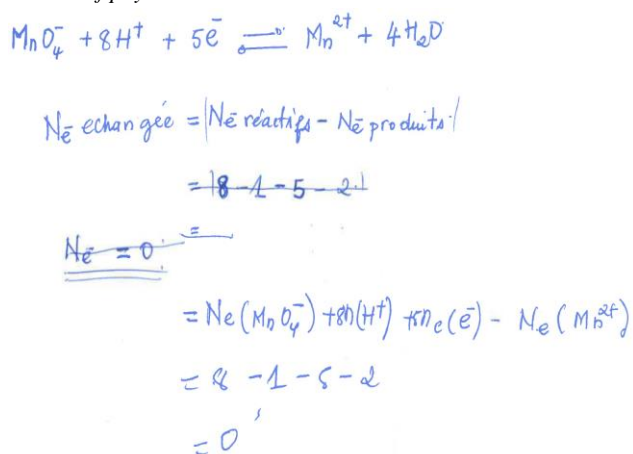 MnO₄⁻ + 8H⁺ + 5e̅ ⇌ Mn²⁺ + 4H₂O
Nē echangée = |Nē réactifs - Nē produits|
= |8 - 1 - 5 - 2|
=
Nē = 0
= Ne(MnO₄⁻) + 8n(H⁺) + 5n_e(e̅) - Ne(Mn²⁺)
= 8 - 1 - 5 - 2
= 0